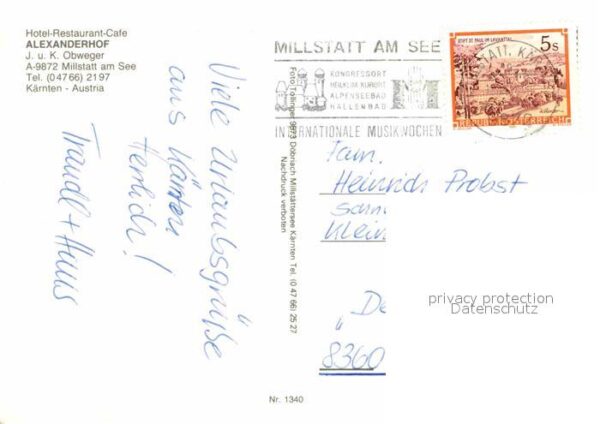 Hotel-Restaurant-Cafe
ALEXANDERHOF
J. u. K. Obweger
A-9872 Millstatt am See
Tel. (0 47 66) 2197
Kärnten - Austria
Viele Urlaubsgrüße
aus Kärnten
Herrlich!
Traudl + Hans
Foto Tollinger 9873 Döbriach Millstättersee Kärnten Tel. (0 47 66) 25 27
Nachdruck verboten
MILLSTATT AM SEE
KONGRESSORT
HEILKLIM. KURORT
ALPENSEEBAD
HALLENBAD
INTERNATIONALE MUSIKWOCHEN
STIFT ST. PAUL IM LAVANTTAL
5s
REPUBLIK ÖSTERREICH
Fam.
Heinrich Probst
Klein
privacy protection
Datenschutz
„De
8360
Nr. 1340